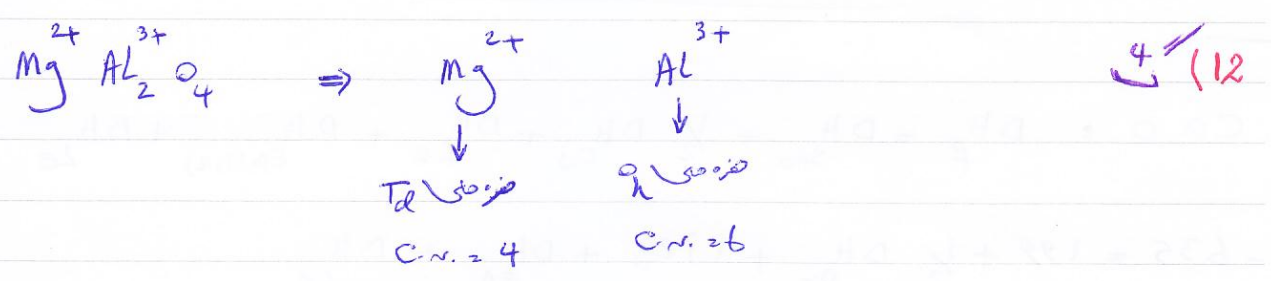 12) 4
Mg²⁺ Al₂³⁺ O₄ ⇒ Mg²⁺ Al³⁺
↓ ↓
حفره های Td حفره های Oh
C.N. = 4 C.N. = 6